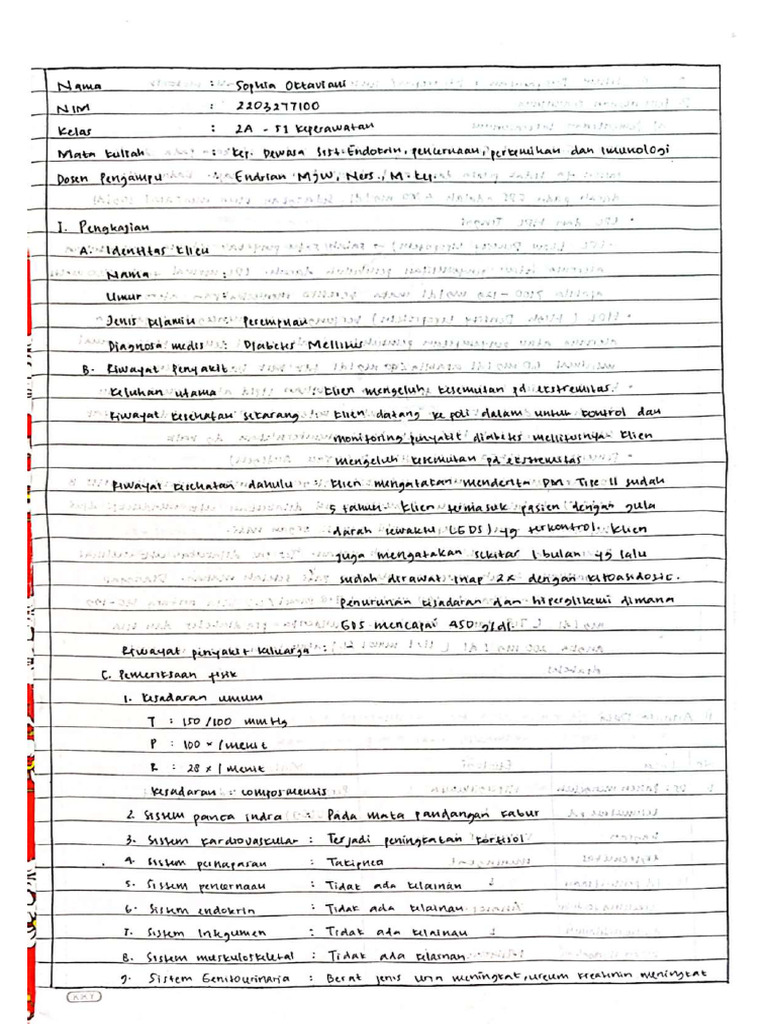 Nama : Sophia Oktaviani
NIM : 2203277100
Kelas : 2A - S1 Keperawatan
Mata kuliah : Kep. Dewasa Sist. Endokrin, pencernaan, perkemihan dan imunologi
Dosen Pengampu : Endrian MJW, Ners., M.Kep.
I. Pengkajian
A. Identitas klien
Nama :
Umur :
Jenis kelamin : Perempuan
Diagnosa medis : Diabetes Mellitus
B. Riwayat Penyakit
Keluhan utama : Klien mengeluh kesemutan pd ekstremitas.
Riwayat kesehatan sekarang : Klien datang ke poli dalam untuk kontrol dan
monitoring penyakit diabetes mellitusnya klien
mengeluh kesemutan pd ekstremitas
Riwayat kesehatan dahulu : Klien mengatakan menderita DM Tipe II sudah
5 tahun. Klien termasuk pasien dengan gula
darah sewaktu (GDS) yg terkontrol. Klien
juga mengatakan sekitar 1 bulan yg lalu
sudah dirawat inap 2x dengan ketoasidosis.
Penurunan kesadaran dan hiperglikemi dimana
GDS mencapai 450 g/dl.
Riwayat penyakit keluarga :
C. Pemeriksaan fisik
1. Kesadaran umum
T : 150/100 mmHg
P : 100 x /menit
R : 28 x /menit
Kesadaran : composmentis
2. Sistem panca indra : Pada mata pandangan kabur
3. Sistem kardiovaskular : Terjadi peningkatan kortisol
4. Sistem pernapasan : Takipnea
5. Sistem pencernaan : Tidak ada kelainan
6. Sistem endokrin : Tidak ada kelainan
7. Sistem Integumen : Tidak ada kelainan
8. Sistem muskuloskeletal : Tidak ada kelainan
9. Sistem Genitourinaria : Berat jenis urin meningkat, ureum kreatinin meningkat